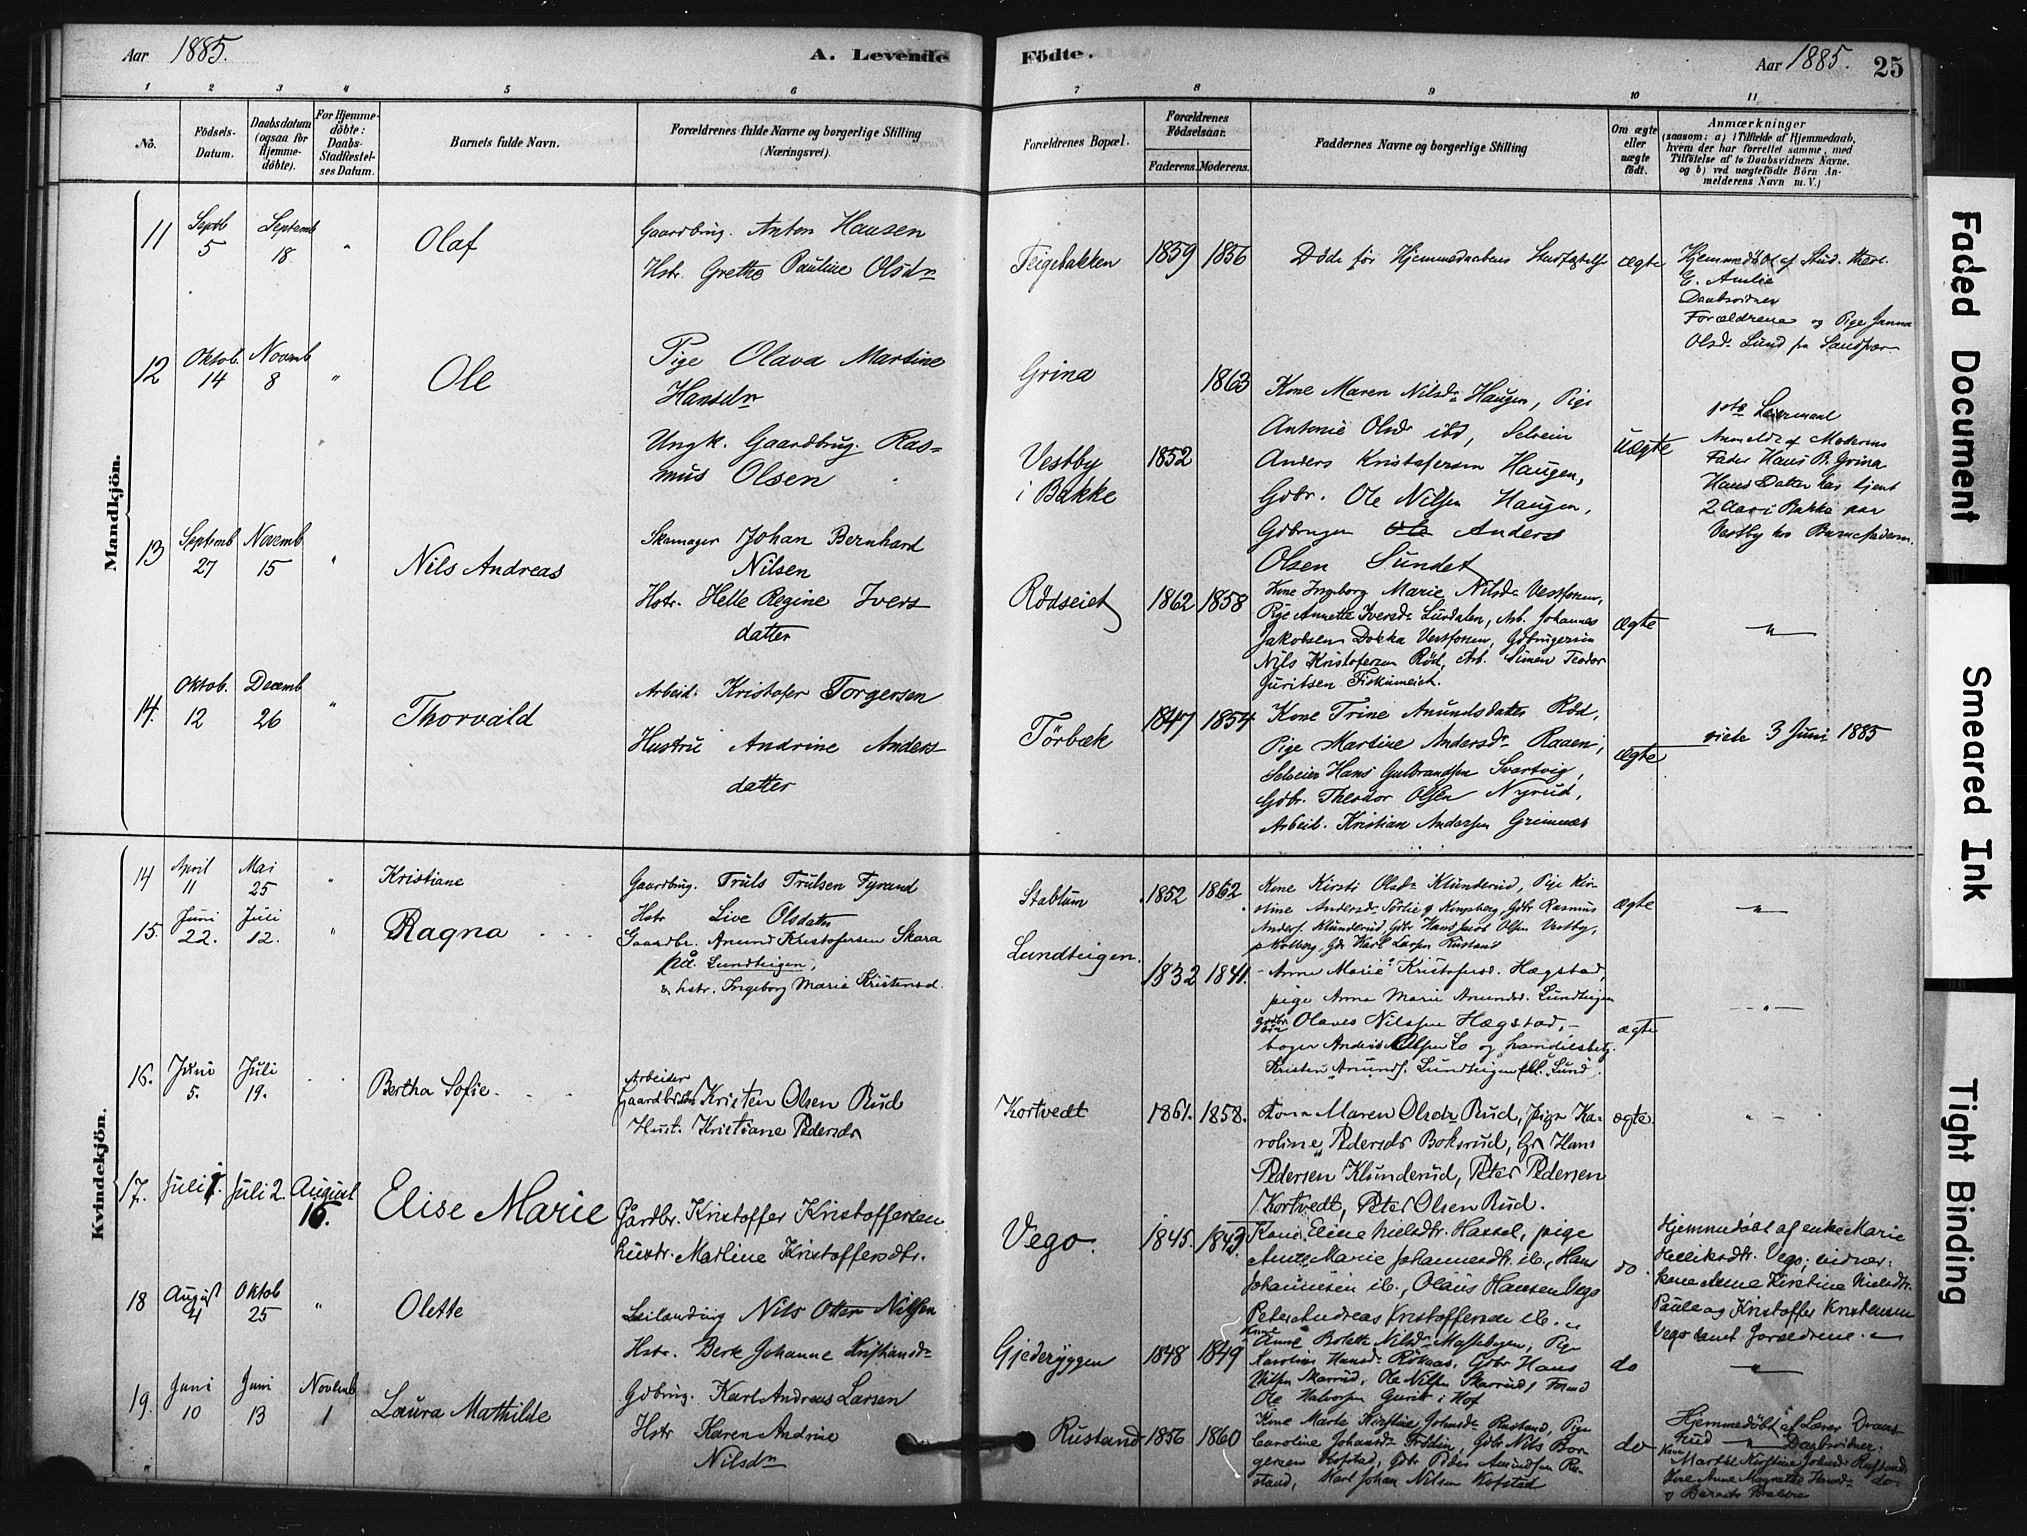 Aar 1885.
A. Levende
Födte.
Aar 1885.
25
1 2 3 4 5 6 7 8 9 10 11
No.
Födsels-
Datum.
Daabsdatum
(ogsaa for
Hjemme-
döbte).
For Hjemme-
döbte:
Daabs-
Stadfæstel-
ses Datum.
Barnets fulde Navn.
Forældrenes fulde Navne og borgerlige Stilling
(Næringsvei).
Forældrenes Bopæl.
Forældrenes
Födselsaar.
Faderens. Moderens.
Faddernes Navne og borgerlige Stilling
Om ægte
eller
uægte
födt.
Anmærkninger
(saasom: a) i Tilfælde af Hjemmedaab,
hvem der har forrettet samme, med
Tilföielse af to Daabsvidners Navne.
og b) ved uægtefödte Börn An-
melderens Navn m. V.)
Mandkjön.
11
Septb
5
Septemb
18
"
Olaf
Gaardbrug. Anton Hansen
Hstr. Grethe Pauline Olsdr
Teigebakken
1859 1856
Döde før Hjemmedaabens Stadfæstelse
ægte
Hjemmedöbt af Stud. theol.
Daabsvidner
Forældrene og Pige Janna
Olsd. Lund fra
12
Oktob.
14
Novemb
8
"
Ole
Pige Olava Martine
Hansdr
Ungk. Gaardbrug. Ras-
mus Olsen
Grina
Vestby
i Bakke
1863
1852
Kone Maren Nilsdr Haugen, Pige
Antonie Olsdr ibd, Selveier
Anders Kristofersen Haugen,
Gdbr. Ole Nilsen Haugen,
Gdbruger Anders
Olsen Sundet
Uægte
1ste Leiermaal
Anmeldt af Moderens
Fader Hans P. Grina
Hans Datter har tjent
2 Aar i Bakke paa
Vestby hos Barnefaderen.
13
Septemb
27
Novemb
15
"
Nils Andreas
Skomager Johan Bernhard
Nilsen
Hstr. Helle Regine Ivers
datter
Rödseiet
1862 1858
Kone Ingeborg Marie Nilsdr Vestfossen,
Pige Annette Iversdr Lurdalen, Arb. Johannes
Jakobsen Dokka Vestfossen, Gdbrugersön
Nils Kristofersen Röd, Arb. Simen Teodor
Juritsen Fiskumeiet.
ægte
"
14.
Oktob.
12
Decemb
26
"
Thorvald
Arbeid. Kristofer Torgersen
Hustru Andrine Anders
datter
Törbæk
1847 1854
Kone Trine Anundsdatter Röd,
Pige Martine Andersdr Raaen,
Selveier Hans Gulbrandsen Svartvig,
Gdbr. Theodor Olsen Nyrud,
Arbeid. Kristian Andersen Grimnæs
ægte
viede 3 Juni 1885
Kvindekjön.
14
April
11
Mai
25
"
Kristiane
Gaardbrug. Truls Trulsen Fyrand
Hstr Live Olsdatter
Stablum
1852 1862
Kone Kirsti Olsdr Klunderud, Pige Kir-
stine Andersdr Kongsberg, Gdbr Rasmus
Anders. Klunderud, Gdbr Hans Jacob Olsen Vestby,
Karl Larsen Rustand
ægte
"
15.
Juni
22.
Juli
12.
"
Ragna
Gaardbr. Anund Kristofersen Skara
på Lundteigen;
& hstr. Ingeborg Marie Kristensd.
Lundteigen.
1832 1841.
Anne Marie Kristofersd. Hægstad,
pige Anna Marie Anundsd. Lundteigen
Olaves Nilssen Hægstad,
Kristen Anunds. Lundteigen
ægte
"
16.
Juni
5.
Juli
19.
Bertha Sofie.
Arbeider
Kristen Olsen Rud
Hust. Kristiane Pedersdr
Kortvedt
1861. 1858.
Kona Maren Olsdr Rud, pige Ka-
roline Pedersdr Boksrud, Hans
Pedersen Klunderud, Peter Pedersen
Kortvedt, Peter Olsen Rud.
ægte.
"
17.
Juli 1.
Juli 2.
August
16.
Elise Marie
Gårdbr. Kristoffer Kristoffersen
hustr. Martine Kristoffersdtr.
Vego.
1845. 1843.
Kone Eline Nielsdtr. Hassel, pige
Anne Marie Johannesdtr. ib., Hans
Johannesen ib., Olaus Hansen Vego
Peter Andreas Kristoffersen ib.
do.
Hjemmedöbt af enke Marie
Helliksdtr. Vego; vidner:
kone Anne Kirstine Nielsdtr.
Paule og Kristoffer Kristensen
Vego samt forældrene.
18
August
4
Oktob
25
"
Olette
Leilænding Nils Otter Nilsen
Hstr. Berte Johanne Kristiansdr
Gjederyggen
1848 1849
Kone Anne Bolette Nilsdr
Karoline Hansdr Rökaas, Gdbr Hans
Nilsen Skarrud, Ole Nilsen Skarrud,
Ole Halvorsen i Hof
do
"
19.
Juni
10
Juni
13
Novemb
1
Laura Mathilde
Gdbrug. Karl Andreas Larsen
Hstr Karen Andrine
Nilsdr
Rustand
1856 1860
Kone Marte Kirstine Johnsdr Rustand, Pige
Caroline Johansdr Gdbr Nils Bor-
gersen Hofstad, Gdbr Peder Amundsen Ru-
stand, Karl Johan Nilsen Hofstad
do
Hjemmedöbt af Lærer Draus-
hud Daabsvidner:
Kone
Marthe Kirstine Johnsdr Rustand
Kone Anne Magrethe Hansdr do.
Faded Document
Smeared Ink
Tight Binding